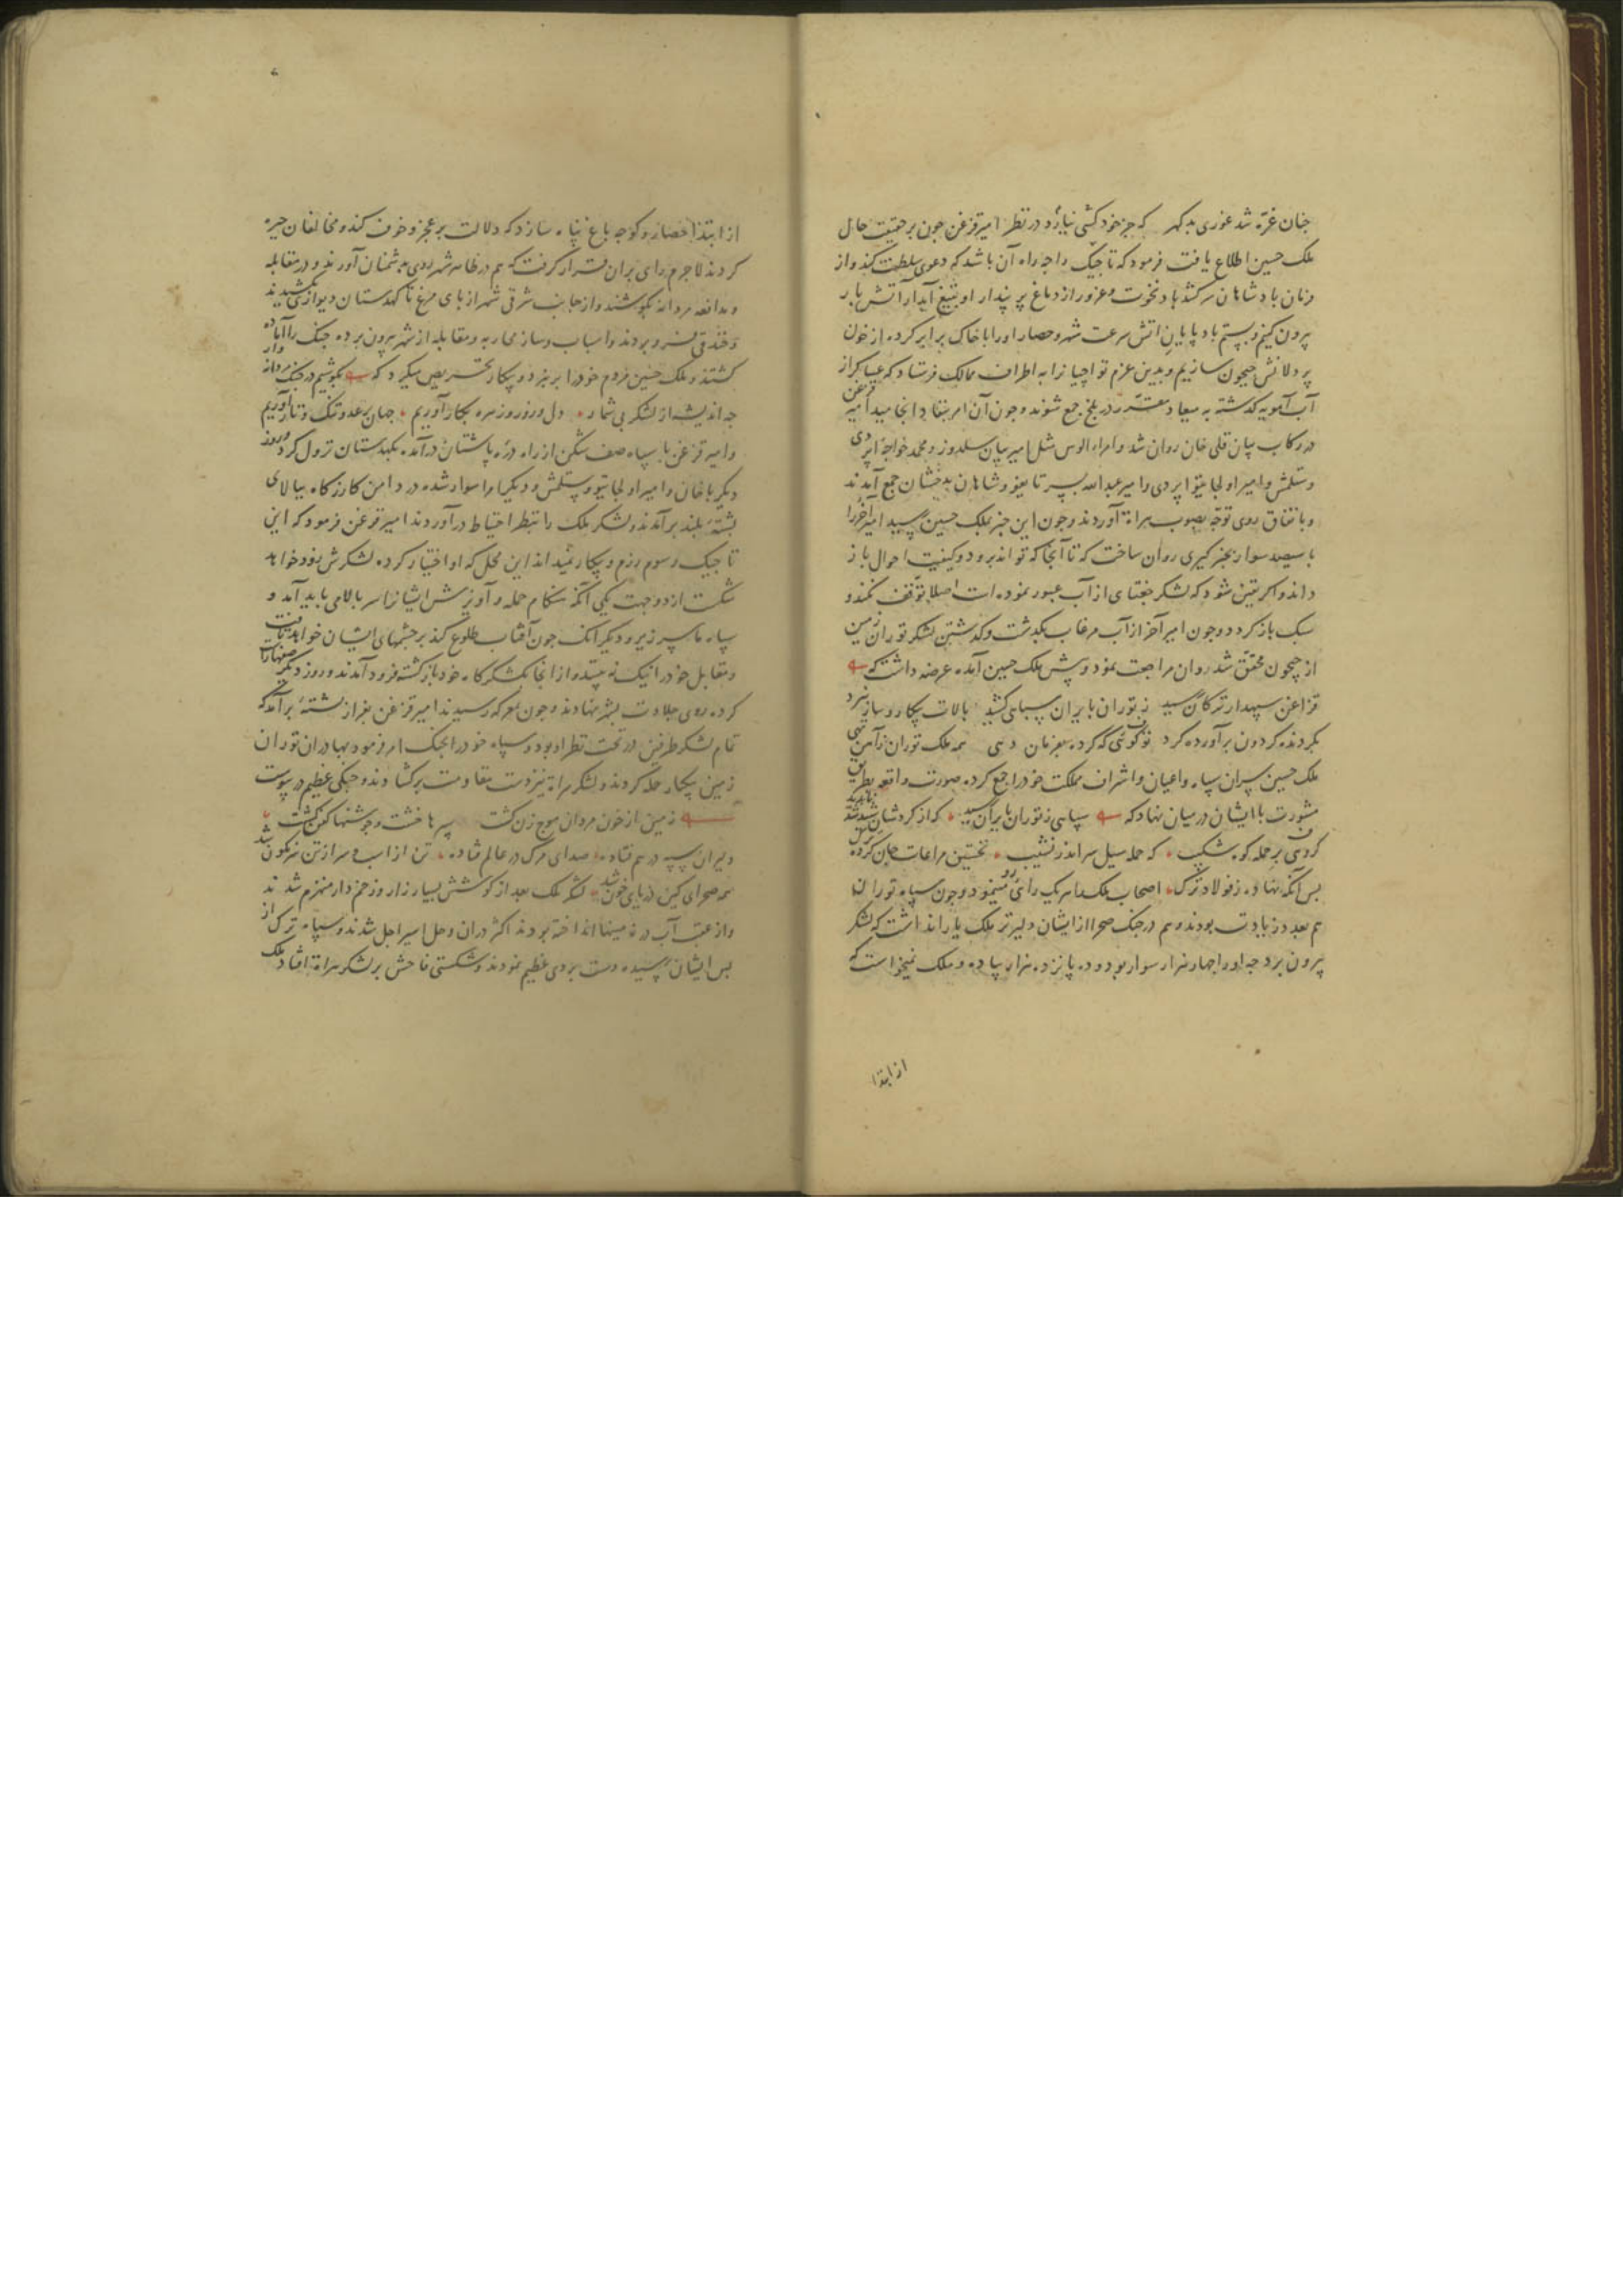 چنان غرّه شد غوری بدگهر که جز خود کسی نیاورد در نظر امیر قزغن چون بر حقیقت حال
ملک حسین اطلاع یافت فرمود که تاجیک را چه راه آن باشد که دعوی سلطنت کند و از
فرمان بادشاهان سر کشد باد نخوت و غرور از دماغ پر پندار او بتیغ آبدار آتش بار
بیرون کنیم و بسم باد پایان اتش سرعت شهر و حصار او را با خاک برابر کرده از خون
پردلانش جیحون سازیم و بدین عزم تواجیانرا به اطراف ممالک فرستاد که عساکر از
آب آمویه گذشته به میعاد مقرر در بلخ جمع شوند و چون آن امر بنفاد انجامید امیر قزغن
در رکاب بیان قلی خان روان شد و امراء الوس مثل امیر بیان سلدوز و محمد خواجه اپردی
و ستلمش و امیر اولجایتو اپردی و امیر عبدالله پسر تایغو و شاهان بدخشان جمع آمدند
و باتفاق روی توجه بصوب هراة آوردند و چون این خبر بملک حسین رسید امیر آخر را
با سیصد سوار بخبر گیری روان ساخت که تا آنجا که تواند برود و کیفیت احوال باز
داند و اگر یقین شود که لشکر جغتای از آب عبور نموده است اصلا توقف نکند و
سبک باز گردد و چون امیر آخر از آب مرغاب بگذشت و گذشتن لشکر توران زمین
از جیحون محقق شد روان مراجعت نمود و پیش ملک حسین آمده عرضه داشت که
قزاغن سپهدار ترکان رسید ز توران بایران سپاهی کشید بالات پیکار و ساز نبرد
بگردنده گردون برآورده گرد تو گوئی که کرده بفرمان دهی همه ملک توران ز آهن تهی
ملک حسین سران سپاه و اعیان و اشراف مملکت خود را جمع کرده صورت واقعه بطریق
مشورت با ایشان در میان نهاد که سپاهی ز توران بایران رسید که از گردشان شید شد ناپدید
گروهی بر حمله کوه شکیب که حمله سیل سر اندر نشیب نخستین مراعات جان کرده ترک
بس آنگه نهاده ز فولاد ترک اصحاب ملک هر یک رائی میزد و چون سپاه تورانی
هم بعدد زیادت بودند و هم در جنگ صحرا از ایشان دلیرتر ملک یارا نداشت که لشکر
بیرون برد چه او را چهار هزار سوار بود و ده پانزده هزار پیاده و ملک نمیخواست که
از ابتدا
از ابتدا حصار و کوچه باغ پناه سازد که دلالت بر عجز و خوف کند و مخالفان چیره
گردند لاجرم رای بران قرار گرفت که هم در ظاهر شهر روی بدشمنان آورند و در مقابله
و مدافعه مردانه بکوشند و از جانب شرقی شهر از پای مرغ تا کهدستان دیواری کشیدند
و خندقی فرو بردند و اسباب و ساز محاربه و مقابله از شهر بیرون برده جنگ را آماده
گشتند و ملک حسین مردم خود را بر نبرد و پیکار تحریص میکرد که بکوشیم در جنگ مردانه وار
چه اندیشه از لشکر بی شمار دل و زور و زهره بکار آوریم جهان بر عدو تنگ و تار آوریم
و امیر قزغن با سپاه صف شکن از راه دره پاشتان درآمده بکهدستان نزول کرد و روز
دیگر با خان و امیر اولجایتو و ستلمش و دیگر امرا سوار شده در دامن کارزگاه ببالای
پشته بلند برآمدند و لشکر ملک را بنظر احتیاط درآوردند امیر قزغن فرمود که این
تاجیک رسوم رزم و پیکار نمیداند این محل که او اختیار کرده لشکرش زود خواهد
شکست از دو جهت یکی آنکه هنگام حمله و آویزش ایشانرا سر بالا می باید آمد و
سپاه ما سر زیر و دیگر آنک چون آفتاب طلوع کند بر چشمهای ایشان خواهد تافت
و مقابل خود را نیک نه بینند و از انجا بلشکرگاه خود بازگشته فرود آمدند و روز دیگر صفها راست
کرده روی جلادت بشهر نهادند و چون بمعرکه رسیدند امیر قزغن بفراز پشته برآمد که
تمام لشکر طرفین در تحت نظر او بود و سپاه خود را بجنگ امر فرمود بهادران توران
زمین بیکبار حمله کردند و لشکر هراة نیز دست مقاومت برگشادند و جنگی عظیم در پیوست
زمین از خون مردان موج زن گشت سپرها خشت و جوشنها کفن گشت
دلیران سپه در هم فتاده صدای مرگ در عالم فتاده تن از اسب و سر از تن سرنگون شد
همه صحرای کین دریای خون شد لشکر ملک بعد از کوشش بسیار زار و زخم دار منهزم شدند
و از عقب آب در زمینها انداخته بودند اکثر دران وحل اسیر اجل شدند و سپاه ترک از
پس ایشان رسیده دست بردی عظیم نمودند و شکستی فاحش بر لشکر هراة افتاد ملک